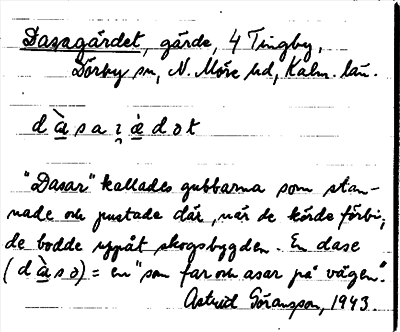 Dasagärdet, gärde, 4 Tingby,
Dörby sn, N. Möre hd, Kalm. län.
d à s a ꝛ è d o t
"Dasar" kallades gubbarna som stan-
nade och pustade där, när de körde förbi;
de bodde uppåt skogsbygden. En dase
(d à s o) = en "som far och asar på vägen".
Astrid Göransson, 1943.